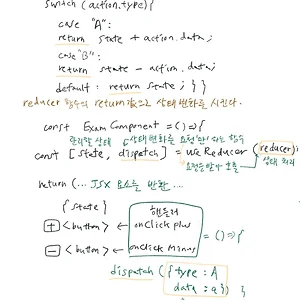 switch (action.type){
case "A":
return state + action.data;
case "B":
return state - action.data;
default : return state ; } }
reducer 함수의 return값으로 상태변화를 시킨다.
const ExamComponent = () => {
관리할 상태 상태변화를 요청한다는 함수
const [state, dispatch] = useReducer (reducer);
상태 처리
return (... JSX 요소를 반환 ...
{state}
핸들러
+ <button> ← onClick Plus
= () => {
- <button> ← onClick Minus
dispatch ({ type : A
data : a }) }